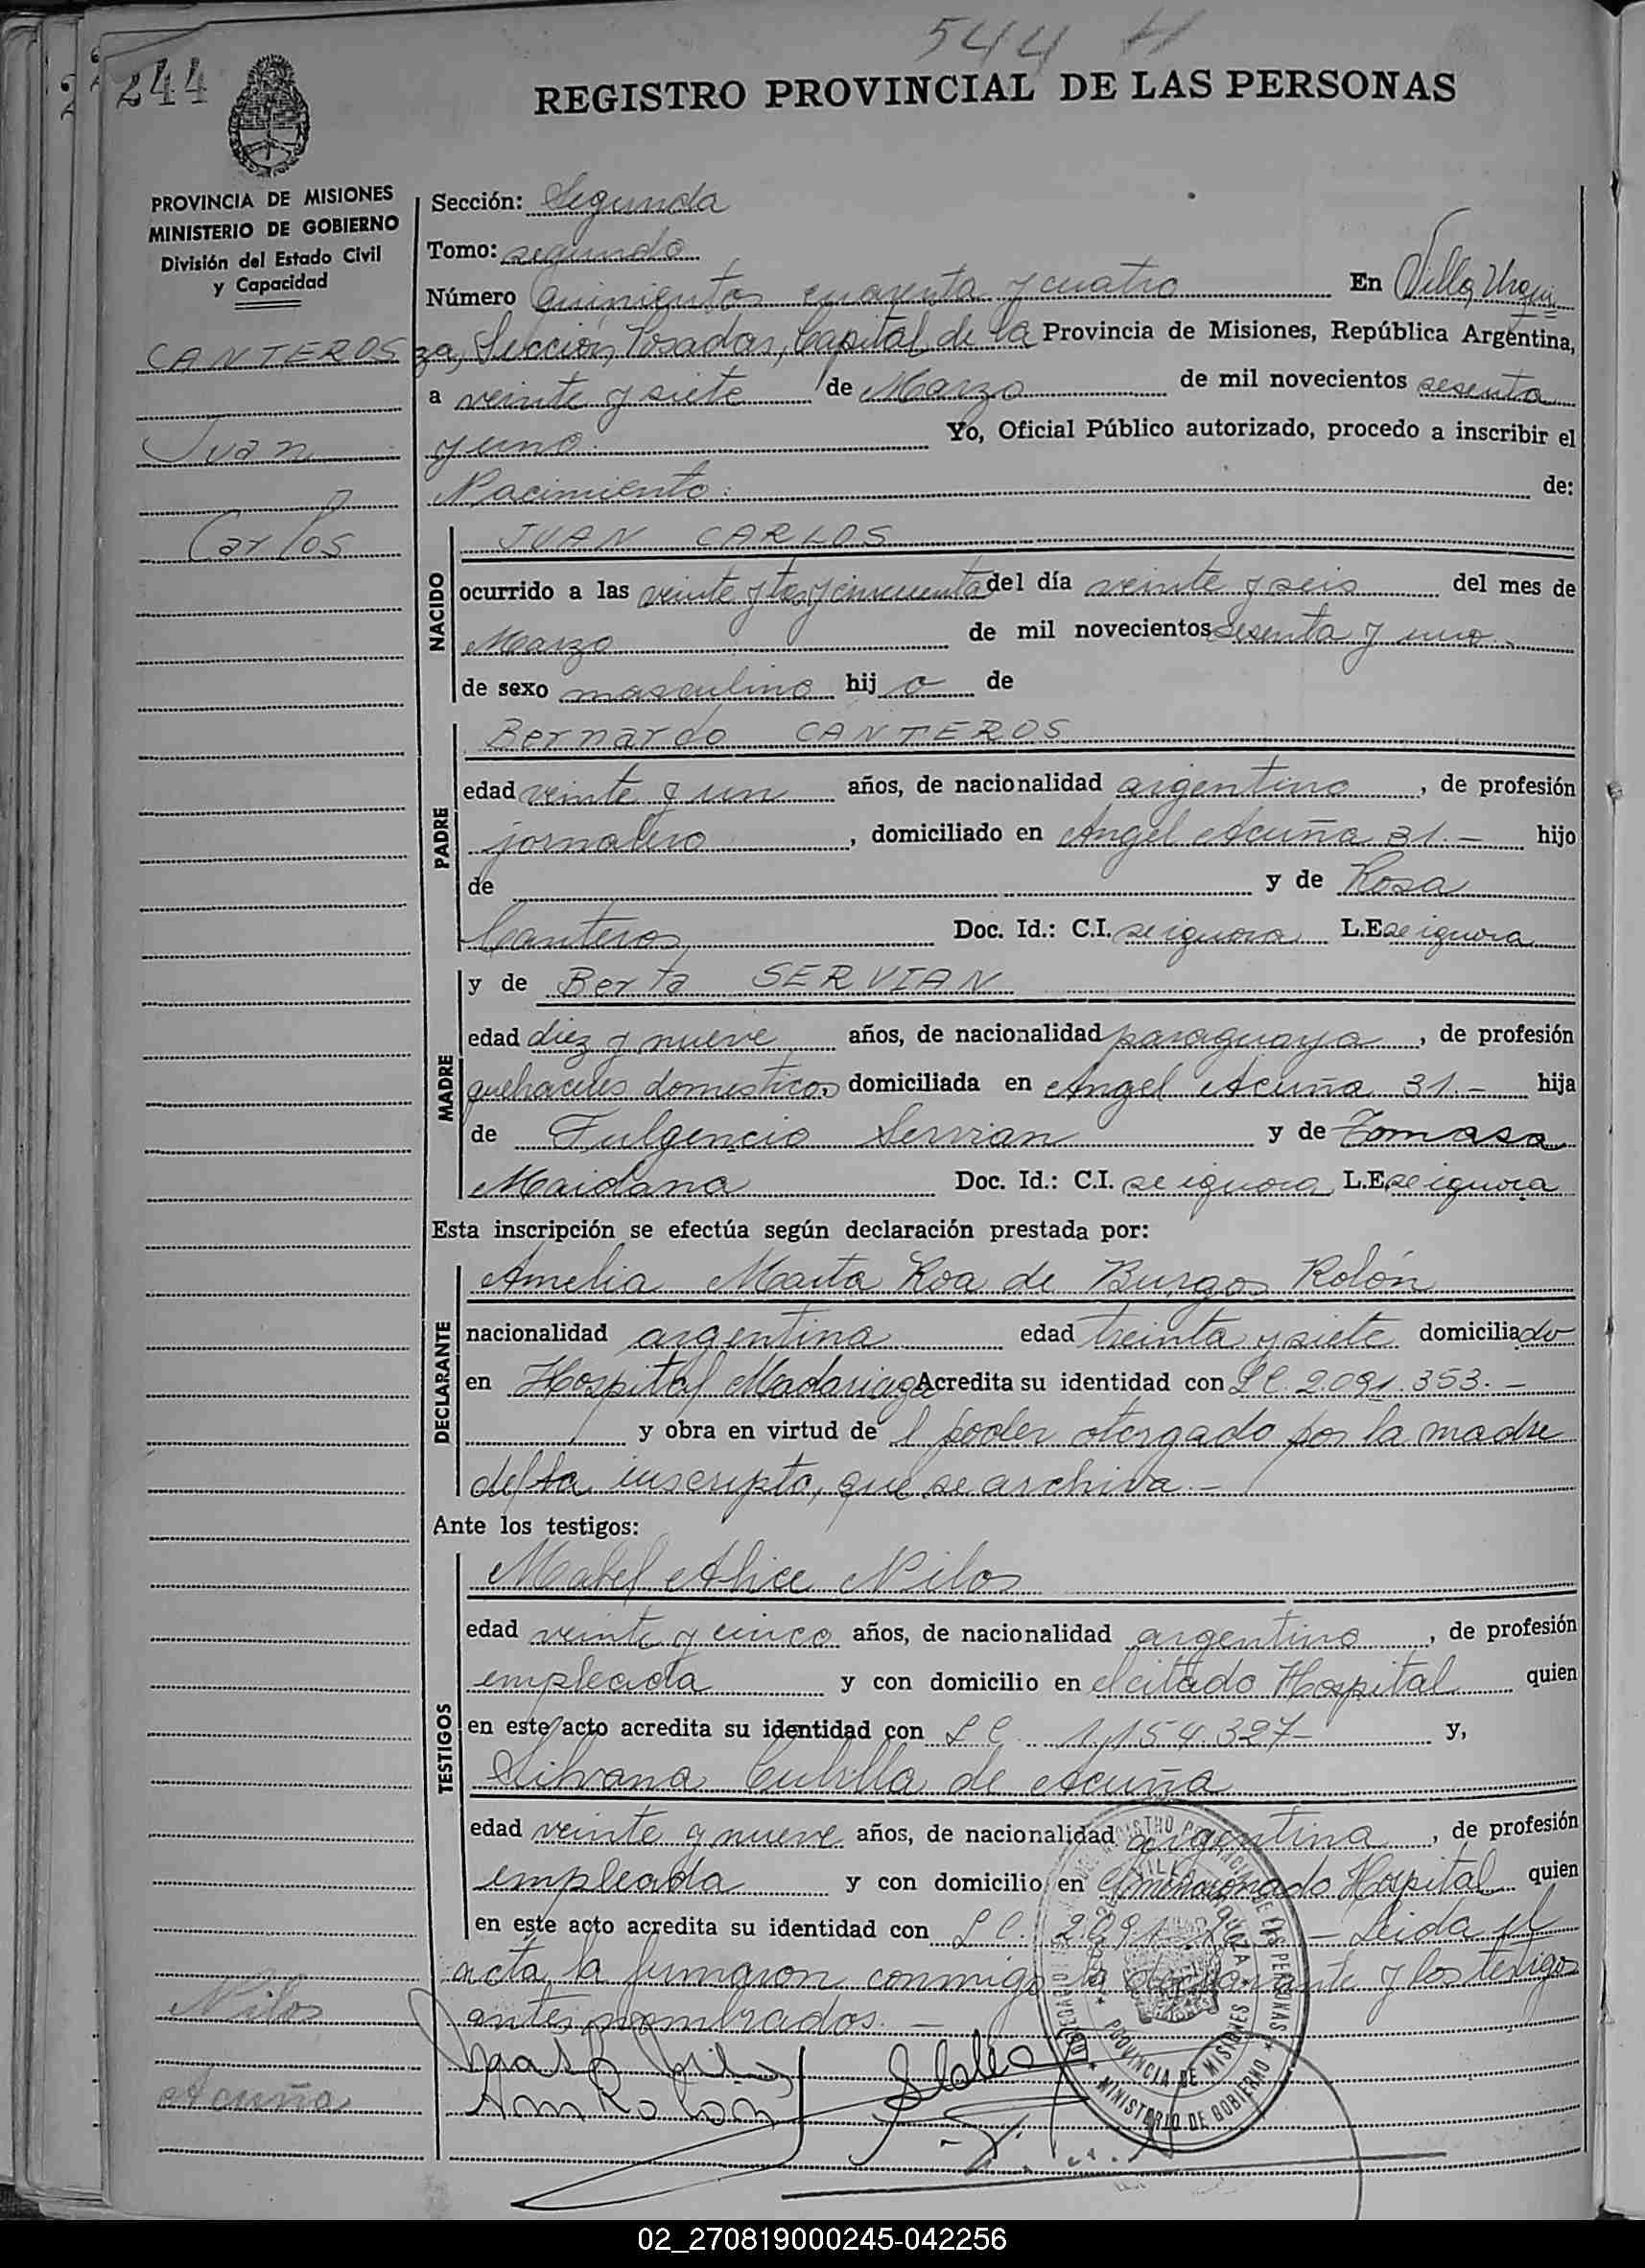 544
244
REGISTRO PROVINCIAL DE LAS PERSONAS
PROVINCIA DE MISIONES
MINISTERIO DE GOBIERNO
División del Estado Civil
y Capacidad
CANTEROS
Juan
Carlos
Sección: Segunda
Tomo: segundo
Número quinientos cuarenta y cuatro En Villa Urqui
za, Sección Posadas, Capital de la Provincia de Misiones, República Argentina,
a veinte y siete de Marzo de mil novecientos sesenta
y uno. Yo, Oficial Público autorizado, procedo a inscribir el
Nacimiento: de:
NACIDO
JUAN CARLOS
ocurrido a las veinte y tres y cincuenta del día veinte y seis del mes de
Marzo de mil novecientos sesenta y uno
de sexo masculino hijo de
PADRE
Bernardo CANTEROS
edad veinte y un años, de nacionalidad argentino, de profesión
jornalero, domiciliado en Angel Acuña 31.- hijo
de y de Rosa
Canteros Doc. Id.: C.I. se ignora L.E. se ignora
MADRE
y de Berta SERVIAN
edad diez y nueve años, de nacionalidad paraguaya, de profesión
quehaceres domésticos domiciliada en Angel Acuña 31.- hija
de Fulgencio Servian y de Tomasa
Maidana Doc. Id.: C.I. se ignora L.E. se ignora
Esta inscripción se efectúa según declaración prestada por:
DECLARANTE
Amelia Marta Roa de Burgos Rolón
nacionalidad argentina edad treinta y siete domiciliado
en Hospital Madariaga Acredita su identidad con L.C. 2.091.353.-
y obra en virtud de l poder otorgado por la madre
del inscripto, que se archiva.-
Ante los testigos:
TESTIGOS
Mabel Alice Nilos
edad veinte y cinco años, de nacionalidad argentino, de profesión
empleada y con domicilio en el citado Hospital quien
en este acto acredita su identidad con L.C. 1.154.327- y,
Silvana Cubilla de Acuña
edad veinte y nueve años, de nacionalidad argentina, de profesión
empleada y con domicilio en el mencionado Hospital quien
en este acto acredita su identidad con L.C. 2.091 - Leida el
acta, la firmaron conmigo la declarante y los testigos
antes nombrados.-
Nilos
Acuña
PROVINCIA DE MISIONES
MINISTERIO DE GOBIERNO
02_270819000245-042256